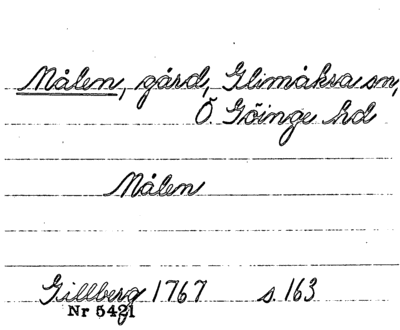 Målen, gård, Glimåkra sn,
Ö. Göinge hd
Målen
Gillberg 1767 s. 163
Nr 5421